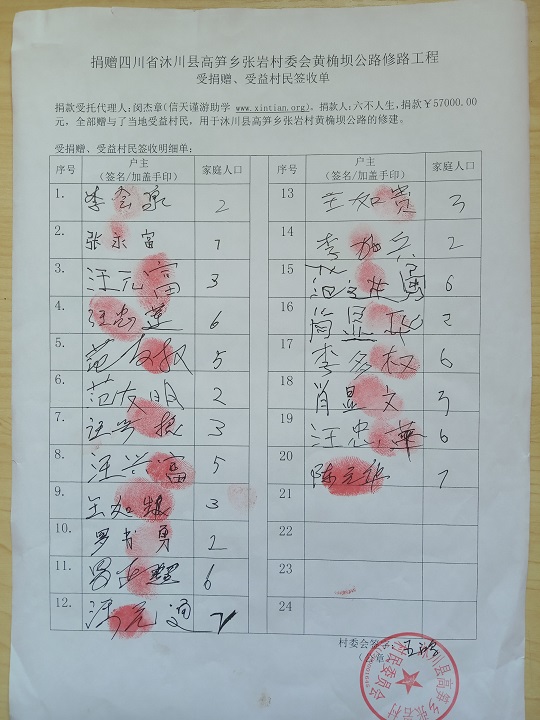 捐赠四川省沐川县高笋乡张岩村委会黄桷坝公路修路工程
受捐赠、受益村民签收单
捐款受托代理人：闵杰章(信天谨游助学 www.xintian.org)，捐款人：六不人生，捐款￥57000.00
元，全部赠与了当地受益村民，用于沐川县高笋乡张岩村黄桷坝公路的修建。
受捐赠、受益村民签收明细单：
序号 户主 家庭人口
(签名/加盖手印)
1. 李会泉 2
2. 张永富 7
3. 汪元富 3
4. 汪忠莲 6
5. 范 5
6. 范友明 2
7. 汪兴 3
8. 汪兴富 5
9. 王如 3
10. 罗书勇 2
11. 6
12. 汪元通
序号 户主 家庭人口
(签名/加盖手印)
13 王如贵 3
14 李 兵 2
15 6
16 简显 2
17 李多权 6
18 肖显文
19 汪忠華 6
20 陈元华 7
21
22
23
24
村委会签字：
（ 章
沐川县高笋乡张岩村村民委员会